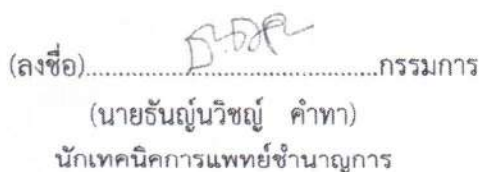 (ลงชื่อ)....................................กรรมการ
(นายธันญ์นวิชญ์ คำทา)
นักเทคนิคการแพทย์ชำนาญการ